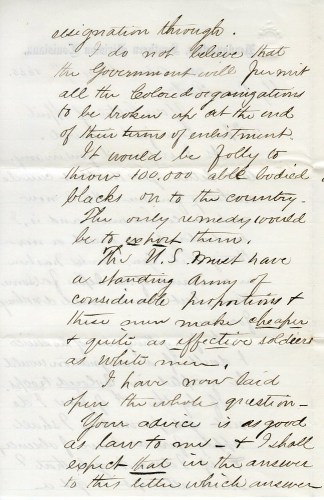 resignation through.
I do not believe that
the Government will permit
all the Colored organizations
to be broken up at the end
of their terms of enlistment.
It would be folly to
throw 100,000 able bodied
blacks on to the country.
The only remedy would
be to export them.
The U.S. must have
a standing Army of
considerable proportions &
these men make cheaper
& quite as effective soldiers
as white men.
I have now laid
open the whole question—
Your advice is as good
as law to me— & I shall
expect that in the answer
to this letter which answer